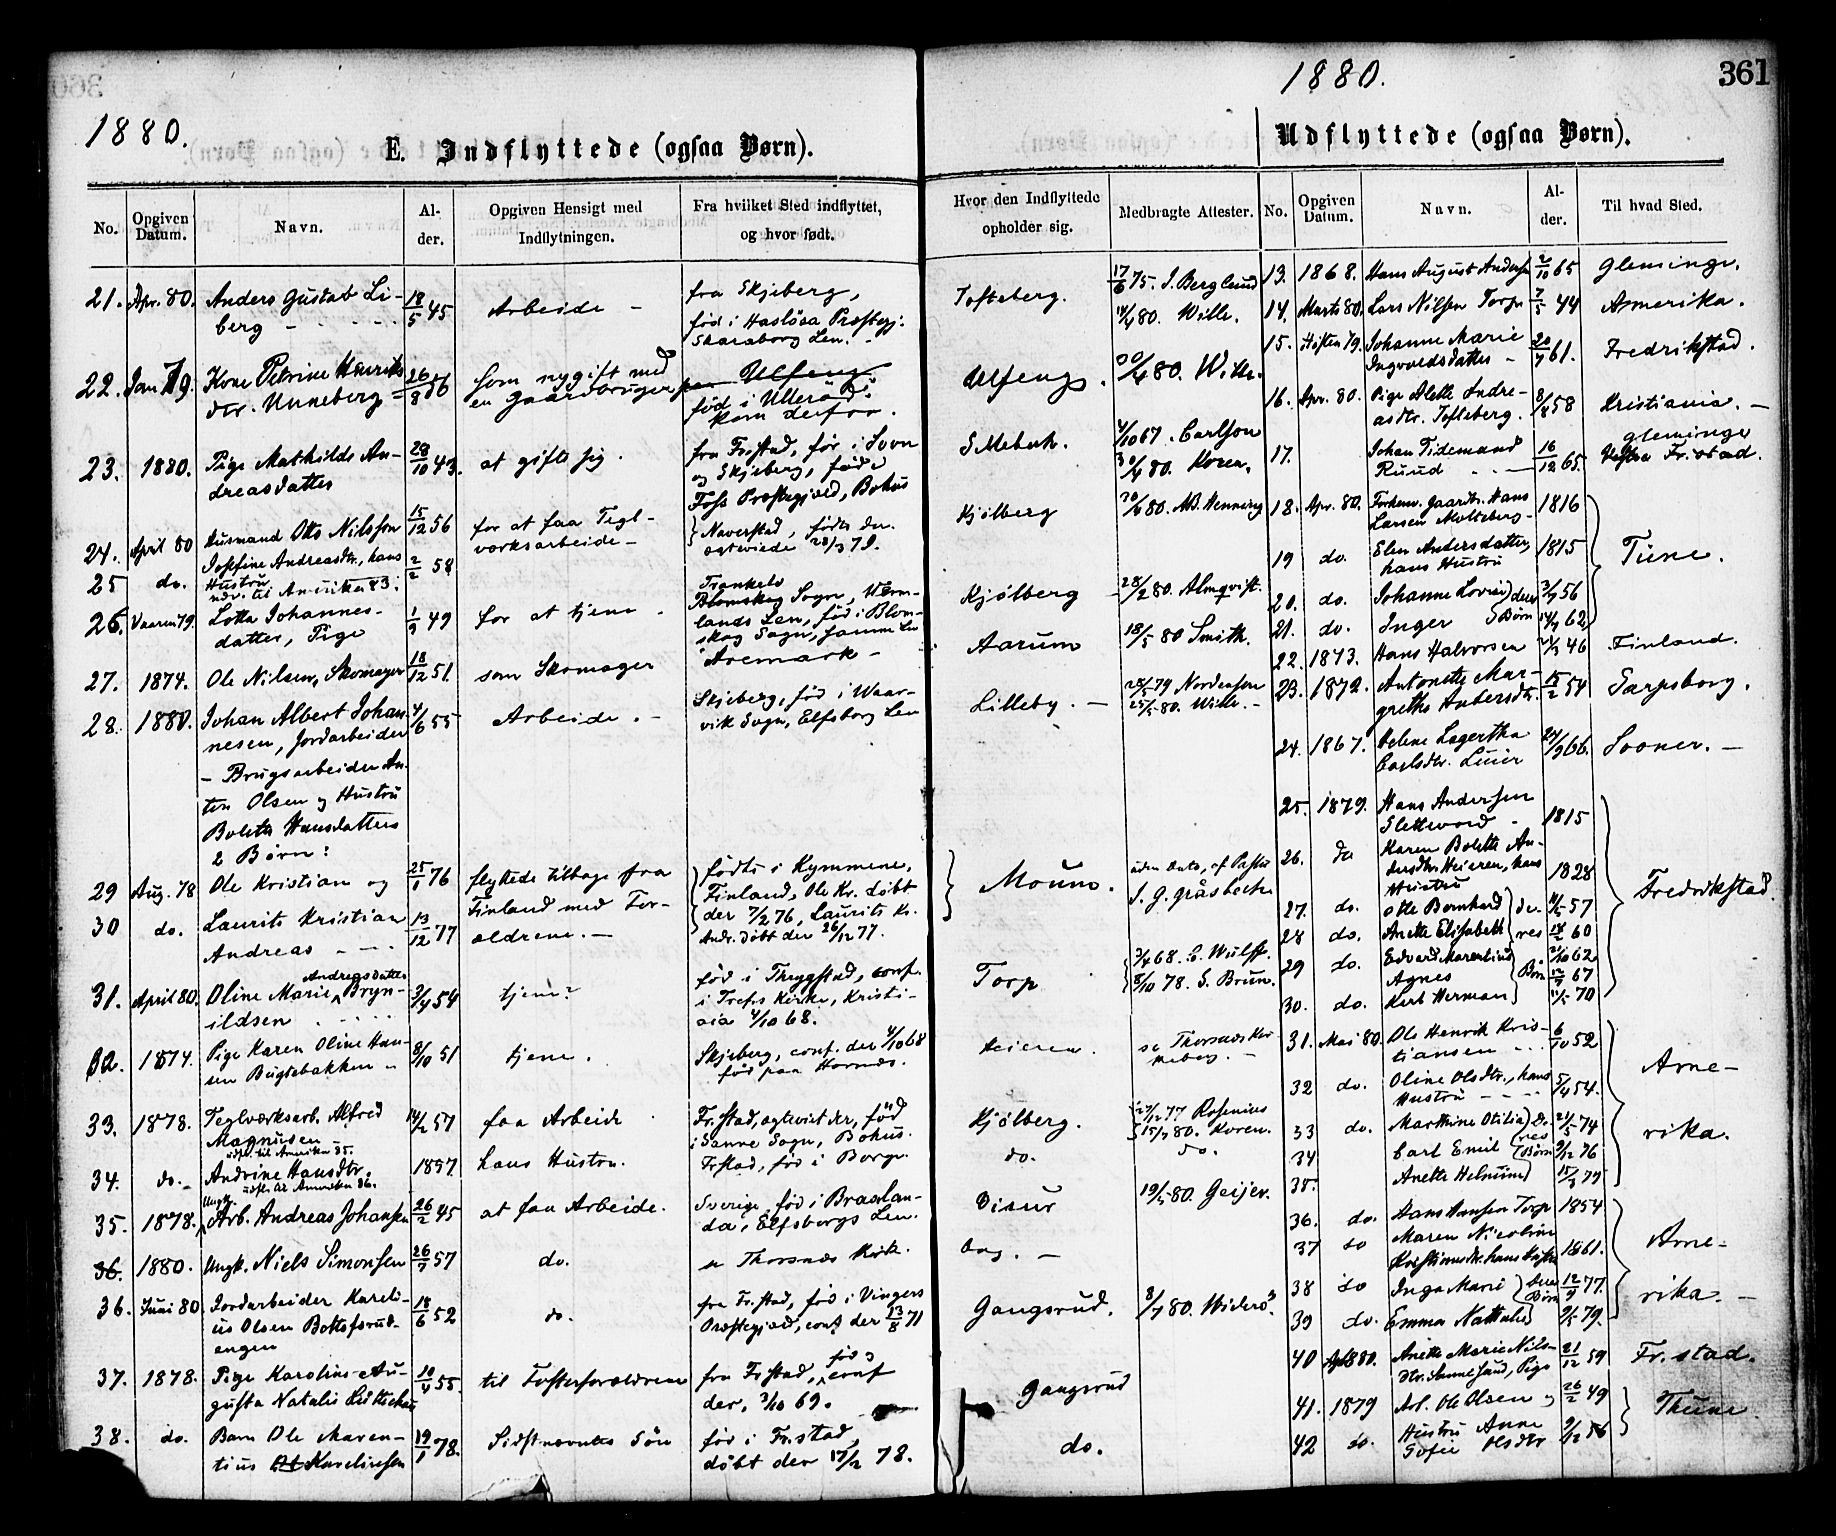 1880.
E. Indflyttede (ogsaa Børn).
No.
Opgiven Datum.
Navn.
Alder.
Opgiven Hensigt med Indflytningen.
Fra hvilket Sted indflyttet, og hvor født.
21. Apr. 80. Anders Gustav Li- 18/5 45 Arbeide – fra Skjeberg,
berg – født i Haslösa Præstegj.
Skaraborg Len. –
22. Kone Petrine Henriks 26/8 56 som nygift med
dtr. Unneberg – en Gaardbruger Ulfeng
født i Ullerød.
kom derfor.
23. 1880. Pige Mathilde An- 28/10 43. at gifte sig. fra Fr.stad, før i Soon
dreasdatter og Skjeberg, født i
Foss Præstegjæld, Bohus
24. April 80 Husmand Otto Nilsson 15/12 56 for at faa Tegl- Naverstad, födte der.
værksarbeide – ægteviede 28/3 79.
25 do. Josefine Andreasdtr., hans 2/2 58
Hustru
udv. til Amerika 83.
26. Vaaren 79. Lotta Johannes- 1/9 49 for at tjene. Trankels
datter, Pige Blomskog Sogn, Werm-
lands Len, född i Blom-
skog Sogn, samme Len
27. 1874. Ole Nilsen, Skomager 18/12 51. som Skomager i Aremark –
28. 1880. Johan Albert Johan 4/6 55 Arbeide. – Skjeberg, född i Waar-
nesen, Jordarbeider vik Sogn, Elfsborg Len
– Brugsarbeider An-
ton Olsen og Hustru
Bolette Hansdatters
2 Børn:
29 Aug. 78 Ole Kristian og 25/1 76 flyttede tilbage fra födte i Kymmene,
30 do. Laurits Kristian 13/12 77 Finland med For- Finland, Ole Kr. döbt
Andreas – ældrene. – der 7/2 76, Laurits Kr.
Andr. döbt der 26/12 77.
31. April 80. Oline Marie Andreasdatter Bryn- 3/4 54 tjene? född i Thrygstad, conf.
ildsen i Trefs Kirke, Kristi-
ania 4/10 68.
32. 1874. Pige Karen Oline Han- 8/10 51 tjene. Skjeberg, conf. der 4/10 68
sen Bugtebakken – född paa Hornnes.
33. 1878. Teglværksarb. Alfred 14/2 57 faa Arbeide Fr.stad, ægteviet der, född
Magnusen – i Sanne Sogn, Bohus.
udfl. til Amerika 85.
34. do. – Andrine Hansdtr. 1857. hans Hustru. Fr.stad, född i Borge.
udfl. til Amerika 86.
35. 1878. Ungk. Arb. Andreas Johansen 26/2 45 at faa Arbeide. Sverige, född i Braalan-
da, Elfsborgs Len.
36. 1880. Ungk. Niels Simonsen 26/7 57 do. se Thorsnæs Kirke.
36. Juni 80. Jordarbeider Kareli- 18/6 52 do. fra Fr.stad, född i Vingers
us Olsen Bottsfsrud- Præstegjæld, conf. der 13/8 71
engen
37. 1878. Pige Karoline Au- 10/4 55 til Fosterforældrene fra Fr.stad, född og conf
gusta Natalie der, 3/10 69.
38. do. Barn Ole Maren- 19/1 78. Sidstnævntes Sön född i Fr.stad,
tius Kareliussen döbt der 17/2 78.
1880.
361
Udflyttede (ogsaa Børn).
Hvor den Indflyttede opholder sig.
Medbragte Attester.
No.
Opgiven Datum.
Navn.
Alder.
Til hvad Sted.
Tofteberg. 17/6 75. J. Berglund 13. 1868. Hans August Andersen 2/10 65 Glemminge.
14/4 80. Wille. 14. Marts 80. Lars Nilsen Torp 7/5 44 Amerika.
15. Hösten 79. Johanne Marie 20/7 61. Fredrikstad.
Ingvoldsdatter –
Ulfeng. 30/4 80. Wille. 16. Apr. 80. Pige Alette Andre- 8/8 58 Kristiania. –
asdtr. Tofteberg.
4/10 67. Carlson
30/4 80. Koren. 17. Johan Tidemand 16/12 65. Glemminge
Ruud Fr.stad.
Kjölberg 30/6 80. M.B. Henning 18. Apr. 80. Forhenv. gaardbr. Hans 1816
Larsen Molteberg –
19 do. Elen Andersdatter, 1815 Tune.
hans Hustru
Kjölberg – 28/2 80. Almqvist. 20. do. Johanne Lovise 3/9 56
deres Börn
Aarum 18/5 80 Smith. 21. do. Inger 62
22. 1873. Hans Halvorsen 46 Finland.
Lilleby. – 79 Nordensen 23. 1872. Antonette Mar- 15/2 54 Sarpsborg.
25/5 80. Wille. – grethe Anbersdtr.
24. 1867. Helene Lagertha 24/9 66. Sooner. –
Carlsdtr. Linier
25. 1879. Hans Andersen 1815
Slettevold –
Mouno. uden Dato, af Pastor 26. do Karen Bolette An- 1828
J. G. Gråsbeck dersdtr. Heieren, hans
Hustru
Fredrikstad.
27. do. Otto Bernhard 57
28 do. Anette Elisabeth 18/2 60
deres Börn
Torp 3/4 68. C. Wulff. 29 do. Edvard Marentius 62
8/10 78. S. Bruun. Agnes 12/9 67
30. do. Karl Herman 11/5 70
Heieren. se Thorsnæs Kir- 31. Mai 80. Ole Henrik Kris- 6/10 52
keberg. – tiansen
32 do. Oline Olsdtr., hans 5/4 54.
Hustru
Ame-
rika.
Kjölberg. 27/12 77 Rosenius 33 do. Marthine Otilia 21/5 74
15/7 80. Koren.
do. do. 34 Carl Emil 9/12 76
35. Anette Helmine 15/3 79
Deres Börn
Visur 19/5 80. Geijer. 36. do. Hans Hansen Torp 1854
37 do Maren Nicoline 1861.
Kristiansdtr. hans Hustru
Ame-
rika. –
38 do Inga Marie 12/9 77.
deres Börn
Gangsrud. 8/7 80. Widerö? 39 do. Emma Nathalie 9/5 79.
40 Apr 1880. Anette Marie Nils- 21/12 59 Fr.stad.
dtr. Sannesund, Pige
Gangsrud 41. 1879 Arb. Ole Olsen og 26/2 49 Thune.
do. 42 do. Hustru Anne 9/12 56
Sofie Olsdtr